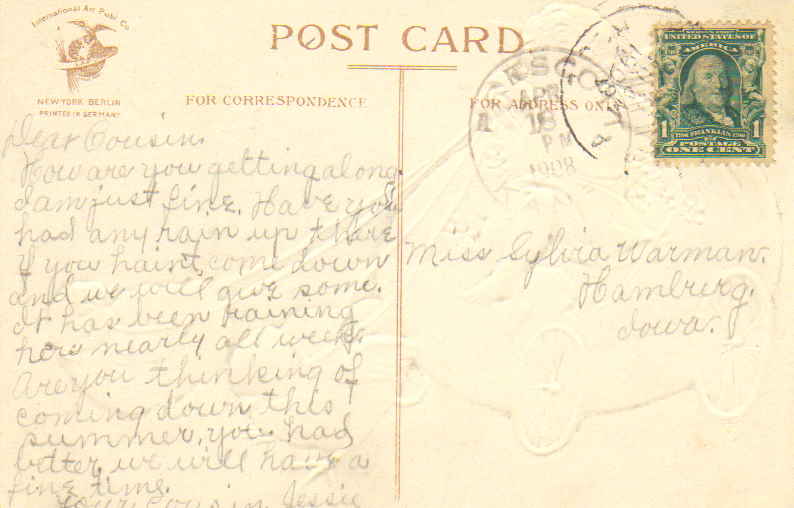 International Art Publ. Co.
NEW YORK BERLIN
PRINTED IN GERMANY
POST CARD.
FOR CORRESPONDENCE
FOR ADDRESS ONLY
APR
18
PM
1908
SERIES 1902
UNITED STATES OF
AMERICA
1 1
FRANKLIN
POSTAGE
ONE CENT
Dear Cousin.
How are you getting along
I am just fine. Have you
had any rain up there
if you haint, come down
and we will give some.
It has been raining
here nearly all week.
Are you thinking of
coming down this
summer, you had
better, we will have a
fine time.
Your Cousin Jessie
Miss Sylvia Warman.
Hamburg.
Iowa.